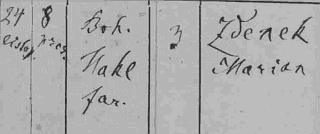 24 8 Boh. 3 Zdenek
listop. pros. Hake Marian
far.